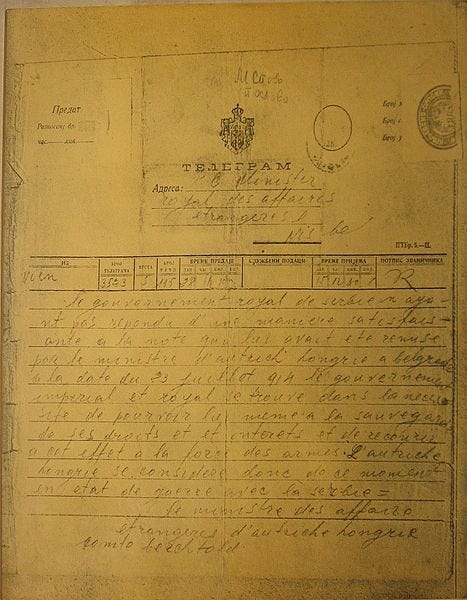 М Стовь
Предат
Број
Број
Број
ТЕЛЕГРАМ
Адреса: S E Minister
royal des affaires
etrangeres
Nis
ПТБр. 5.—II.
ИЗ
БРОЈ ТЕЛЕГРАМА
ВРСТА
БРОЈ РЕЧИ
ВРЕМЕ ПРЕДАЈЕ
СЛУЖБЕНИ ПОДАЦИ
ВРЕМЕ ПРИЈЕМА
ПОТПИС ЗВАНИЧНИКА
Vien 3523 5 115 28
le gouvernement royal de serbie n aya-
nt pas repondu d'une maniere satisfais-
ante a la note qui lui avait ete remise
par le ministre d'autriche hongrie a belgrade
a la date du 23 juillet 914 le gouvernement
imperial et royal se trouve dans la neces
site de pourvoir lui meme a la sauvegarde
de ses droits et et interets et de recourir
a cet effet a la force des armes. L autriche
hongrie se considere donc de ce moment
en etat de guerre avec la serbie =
le ministre des affaire
etrangeres d'autriche hongrie
comte berchtold